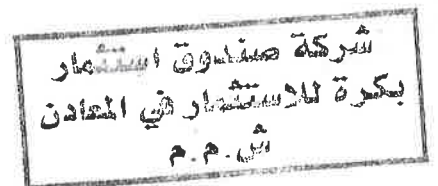 شركة صندوق الاستثمار
بكرة للاستثمار في المعادن
ش.م.م